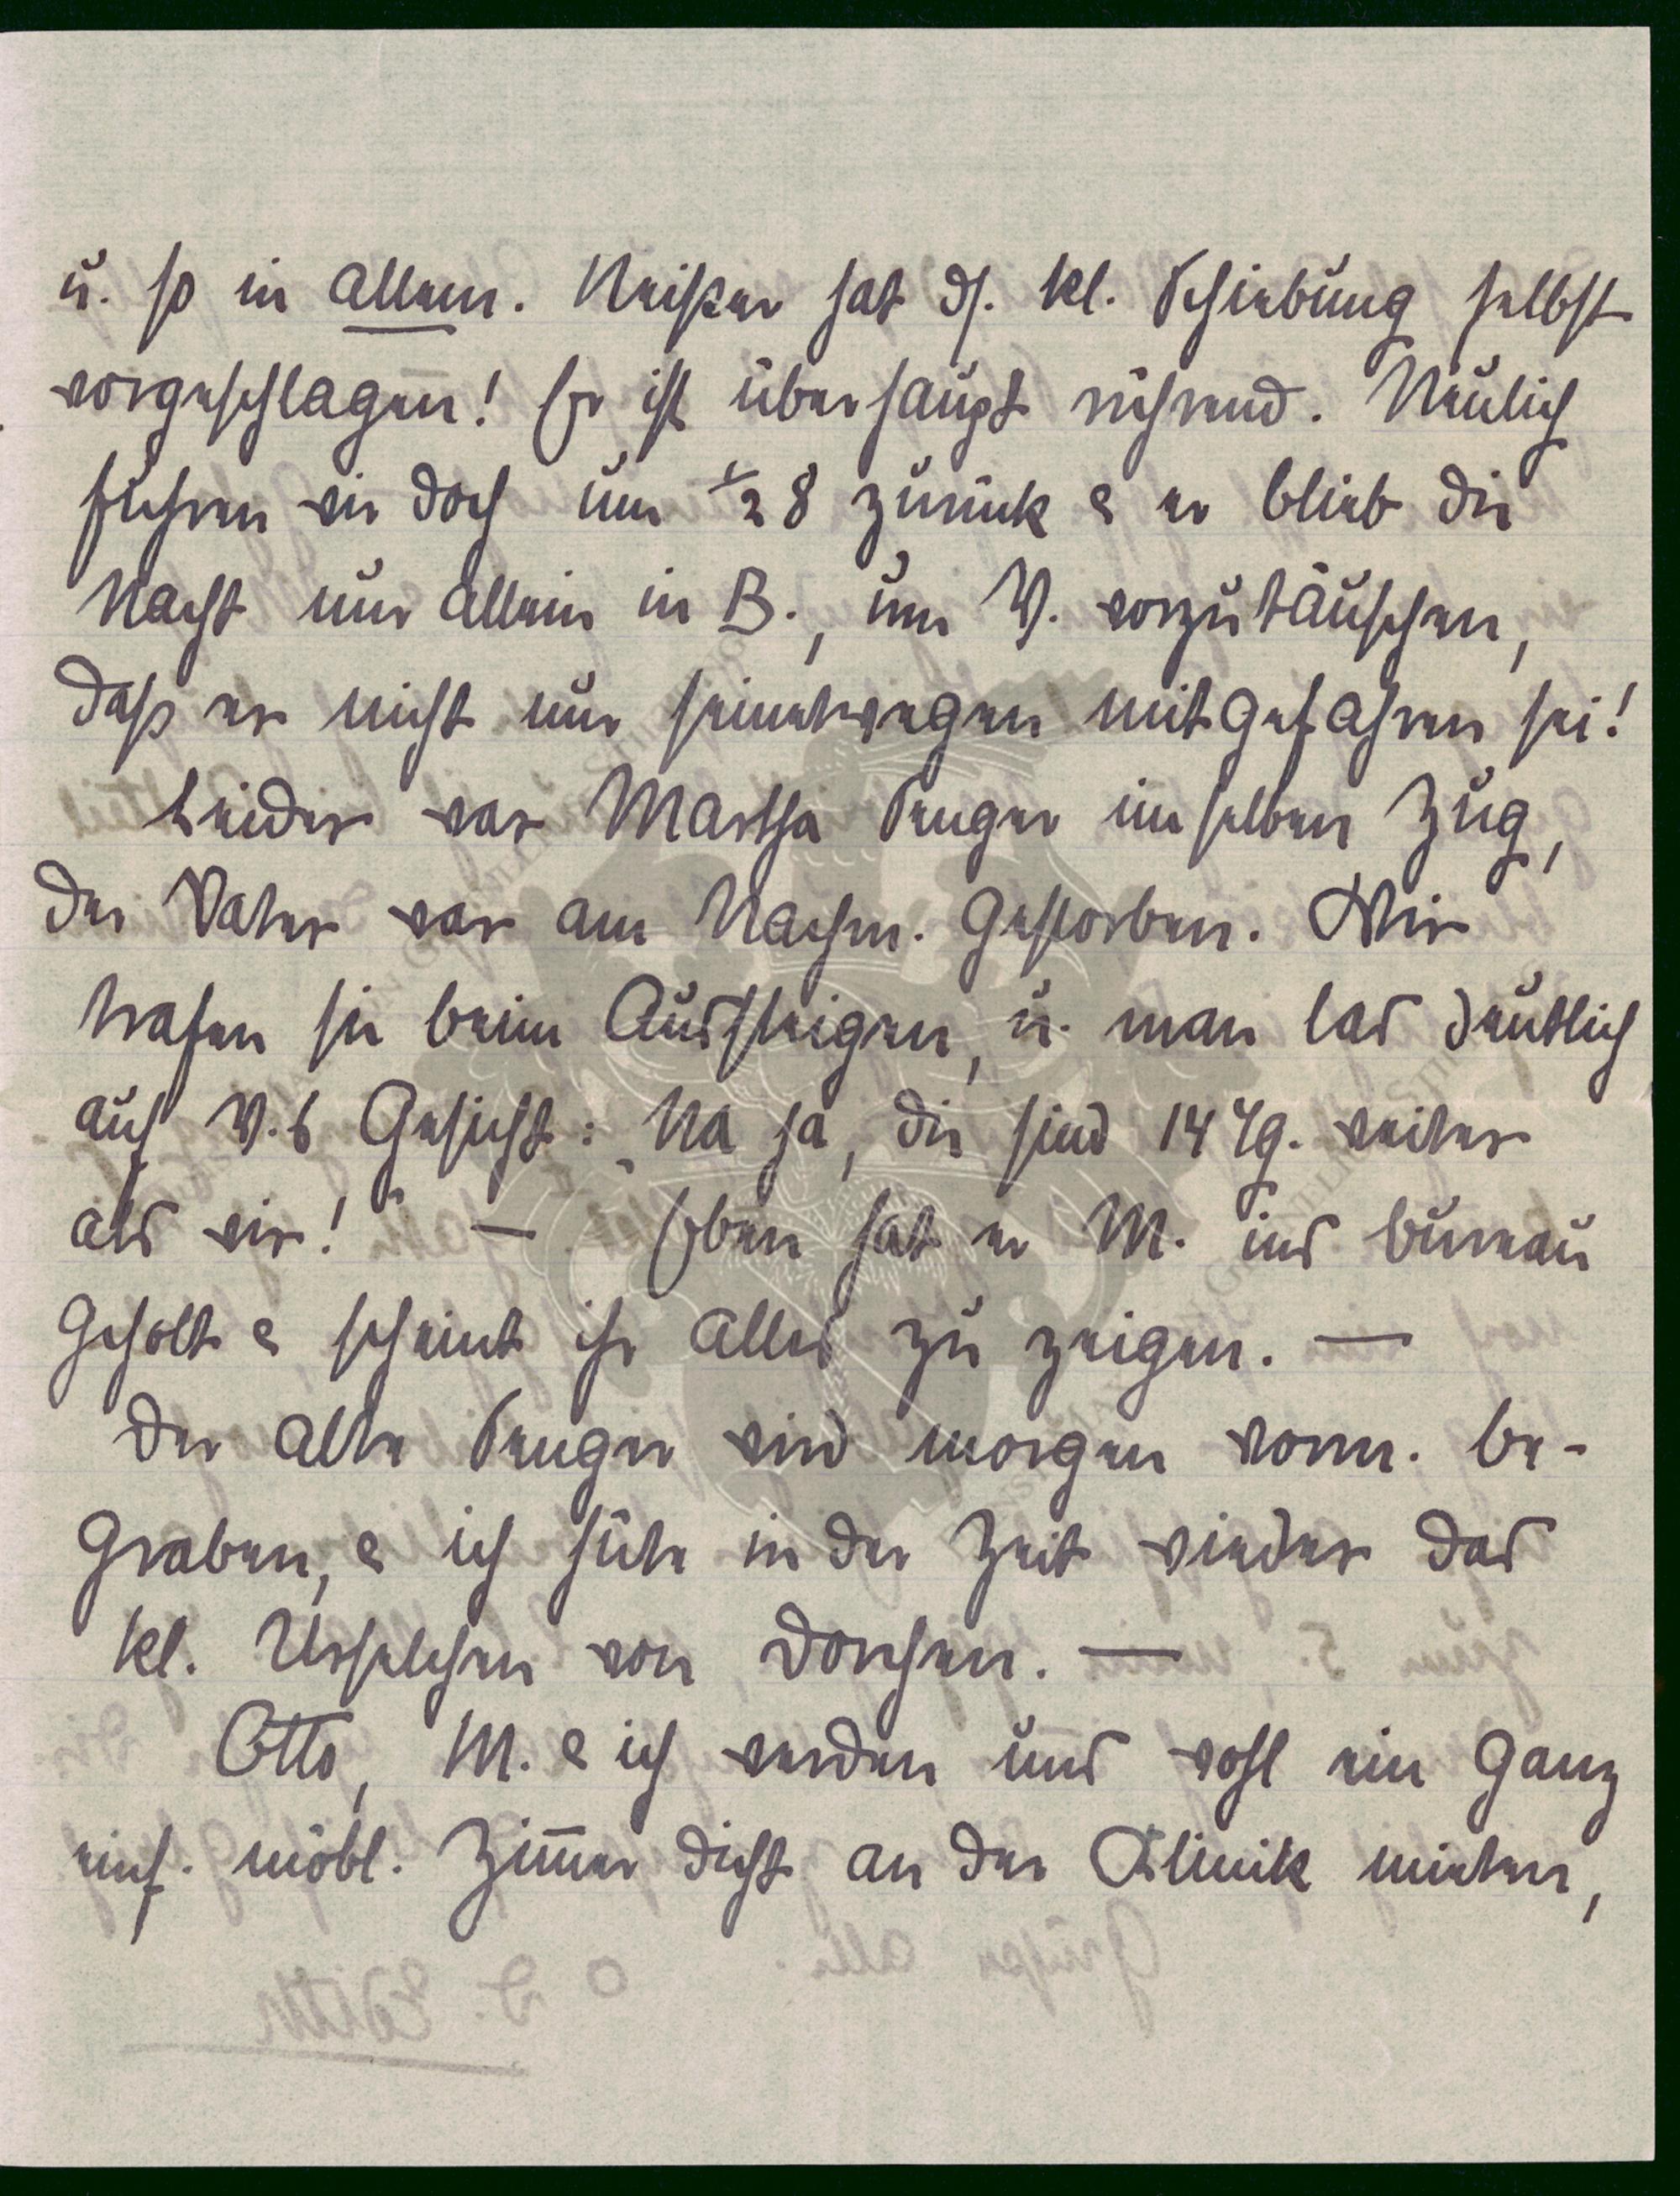 u. so in allem. Neißer hat ds. kl. Schiebung selbst
vorgeschlagen! Er ist überhaupt rührend. Neulich
fuhren wir doch um ½ 8 zurück & er blieb die
Nacht nur allein in B., um V. vorzutäuschen,
daß er nicht nur seinetwegen mitgefahren sei!
Leider war Martha Senger im selben Zug,
der Vater war am Nachm. gestorben. Wir
trafen sie beim Aussteigen, u. man las deutlich
auf V.s Gesicht: „Na ja, die sind 14 Tg. weiter
als wir!" — Eben hat er M. ins Bureau
geholt & scheint ihr alles zu zeigen. —
Der alte Senger wird morgen vorm. be-
graben, & ich hüte in der Zeit wieder das
kl. Urselchen von Dorchen. —
Otto, M. & ich werden uns wohl ein ganz
einf. möbl. Zimmer dicht an der Klinik mieten,